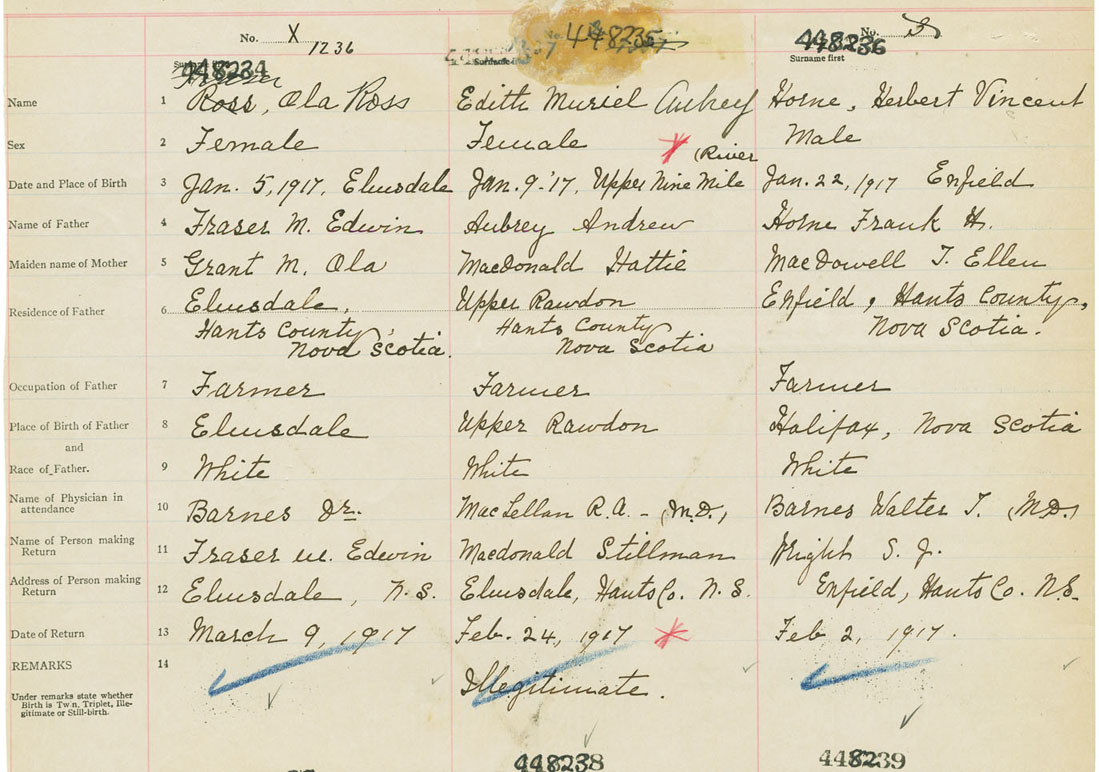 No. X
1236
No. 448235
No. 3
448234
448236
Surname first
Name 1 Ross, Ola Ross Edith Muriel Aubrey Horne, Herbert Vincent
Sex 2 Female Female Male
(River
Date and Place of Birth 3 Jan. 5, 1917, Elmsdale Jan. 9-'17, Upper Nine Mile Jan. 22, 1917 Enfield
Name of Father 4 Fraser M. Edwin Aubrey Andrew Horne Frank H.
Maiden name of Mother 5 Grant M. Ola MacDonald Hattie MacDowell T. Ellen
Residence of Father 6 Elmsdale, Upper Rawdon Enfield, Hants County,
Hants County, Hants County Nova Scotia.
Nova Scotia. Nova Scotia
Occupation of Father 7 Farmer Farmer Farmer
Place of Birth of Father 8 Elmsdale Upper Rawdon Halifax, Nova Scotia
and
Race of Father. 9 White White White
Name of Physician in
attendance 10 Barnes Dr. MacLellan R.A. - (M.D.) Barnes Walter T. (M.D.)
Name of Person making
Return 11 Fraser M. Edwin Macdonald Stillman Wright S. J.
Address of Person making
Return 12 Elmsdale, N.S. Elmsdale, Hants Co. N.S. Enfield, Hants Co. N.S.
Date of Return 13 March 9, 1917 Feb. 24, 1917 Feb 2, 1917.
REMARKS 14
Illegitimate.
Under remarks state whether
Birth is Twin, Triplet, Ille-
gitimate or Still-birth.
448238 448239